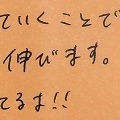 ていくことで
伸びます。
てるよ!!